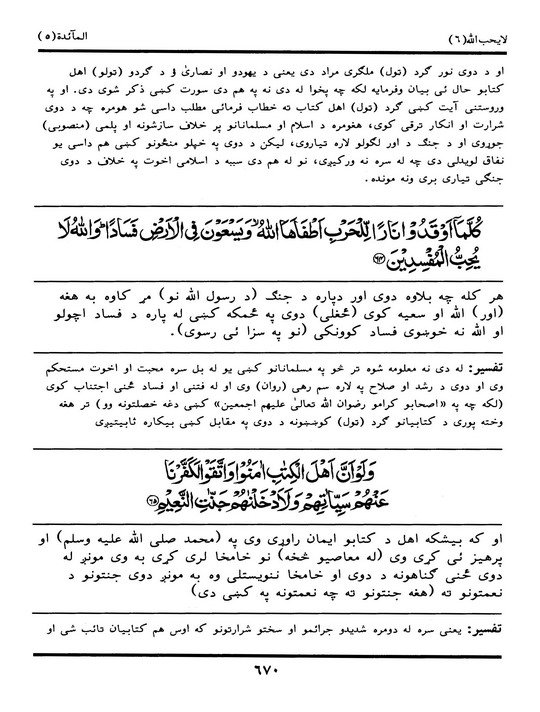 لايحب الله (٦)
المآئدة (٥)
او د دوى نور گرد (ټول) ملگرى مراد دى يعنى د يهودو او نصارىٰ ؤ د گردو (ټولو) اهل
كتابو حال ئى بيان وفرمايه لكه چه پخوا له دى نه په هم دى سورت كښى ذكر شوى دى. او په
وروستنى آيت كښى گرد (ټول) اهل كتاب ته خطاب فرمائى مطلب داسى شو هومره چه د دوى
شرارت او انكار ترقى كوى، هغومره د اسلام او مسلمانانو پر خلاف سازشونه او پلمى (منصوبى)
جوړوى او د جنگ د اور لگولو لاره تياروى، ليكن د دوى په خپلو منځونو كښى هم داسى يو
نفاق لويدلى دى چه له سره نه وركيږى، نو له هم دى سببه د اسلامى اخوت په خلاف د دوى
جنگى تيارى برى ونه مونده.
كُلَّمَآ اَوْقَدُوْا نَارًا لِّلْحَرْبِ اَطْفَاَهَا اللّٰهُ وَيَسْعَوْنَ فِى الْاَرْضِ فَسَادًا وَاللّٰهُ لَا
يُحِبُّ الْمُفْسِدِيْنَ ﴿٦٤﴾
هر كله چه بلاوه دوى اور دپاره د جنگ (د رسول الله نو) مړ كاوه به هغه
(اور) الله او سعيه كوى (ځغلى) دوى په ځمكه كښى له پاره د فساد اچولو
او الله نه خوښوى فساد كوونكى (نو په سزا ئى رسوى).
تفسير: له دى نه معلومه شوه تر څو په مسلمانانو كښى يو له بل سره محبت او اخوت مستحكم
وى او دوى د رشد او صلاح په لاره سم رهى (روان) وى او له فتنى او فساد ځنى اجتناب كوى
(لكه چه په «اصحابو كرامو رضوان الله تعالىٰ عليهم اجمعين» كښى دغه خصلتونه وو) تر هغه
وخته پورى د كتابيانو گرد (ټول) كوښښونه د دوى په مقابل كښى بيكاره ثابتيږى
وَلَوْ اَنَّ اَهْلَ الْكِتٰبِ اٰمَنُوْا وَاتَّقَوْا لَكَفَّرْنَا
عَنْهُمْ سَيِّاٰتِهِمْ وَلَاَدْخَلْنٰهُمْ جَنّٰتِ النَّعِيْمِ ﴿٦٥﴾
او كه بيشكه اهل د كتابو ايمان راوړى وى په (محمد صلى الله عليه وسلم) او
پرهيز ئى كړى وى (له معاصيو څخه) نو خامخا لرى كړى به وى مونږ له
دوى ځنى گناهونه د دوى او خامخا ننويستلى وه به مونږ دوى جنتونو د
نعمتونو ته (هغه جنتونو ته چه نعمتونه په كښى دى)
تفسير: يعنى سره له دومره شديدو جرائمو او سختو شرارتونو كه اوس هم كتابيان تائب شى او
٦٧٠